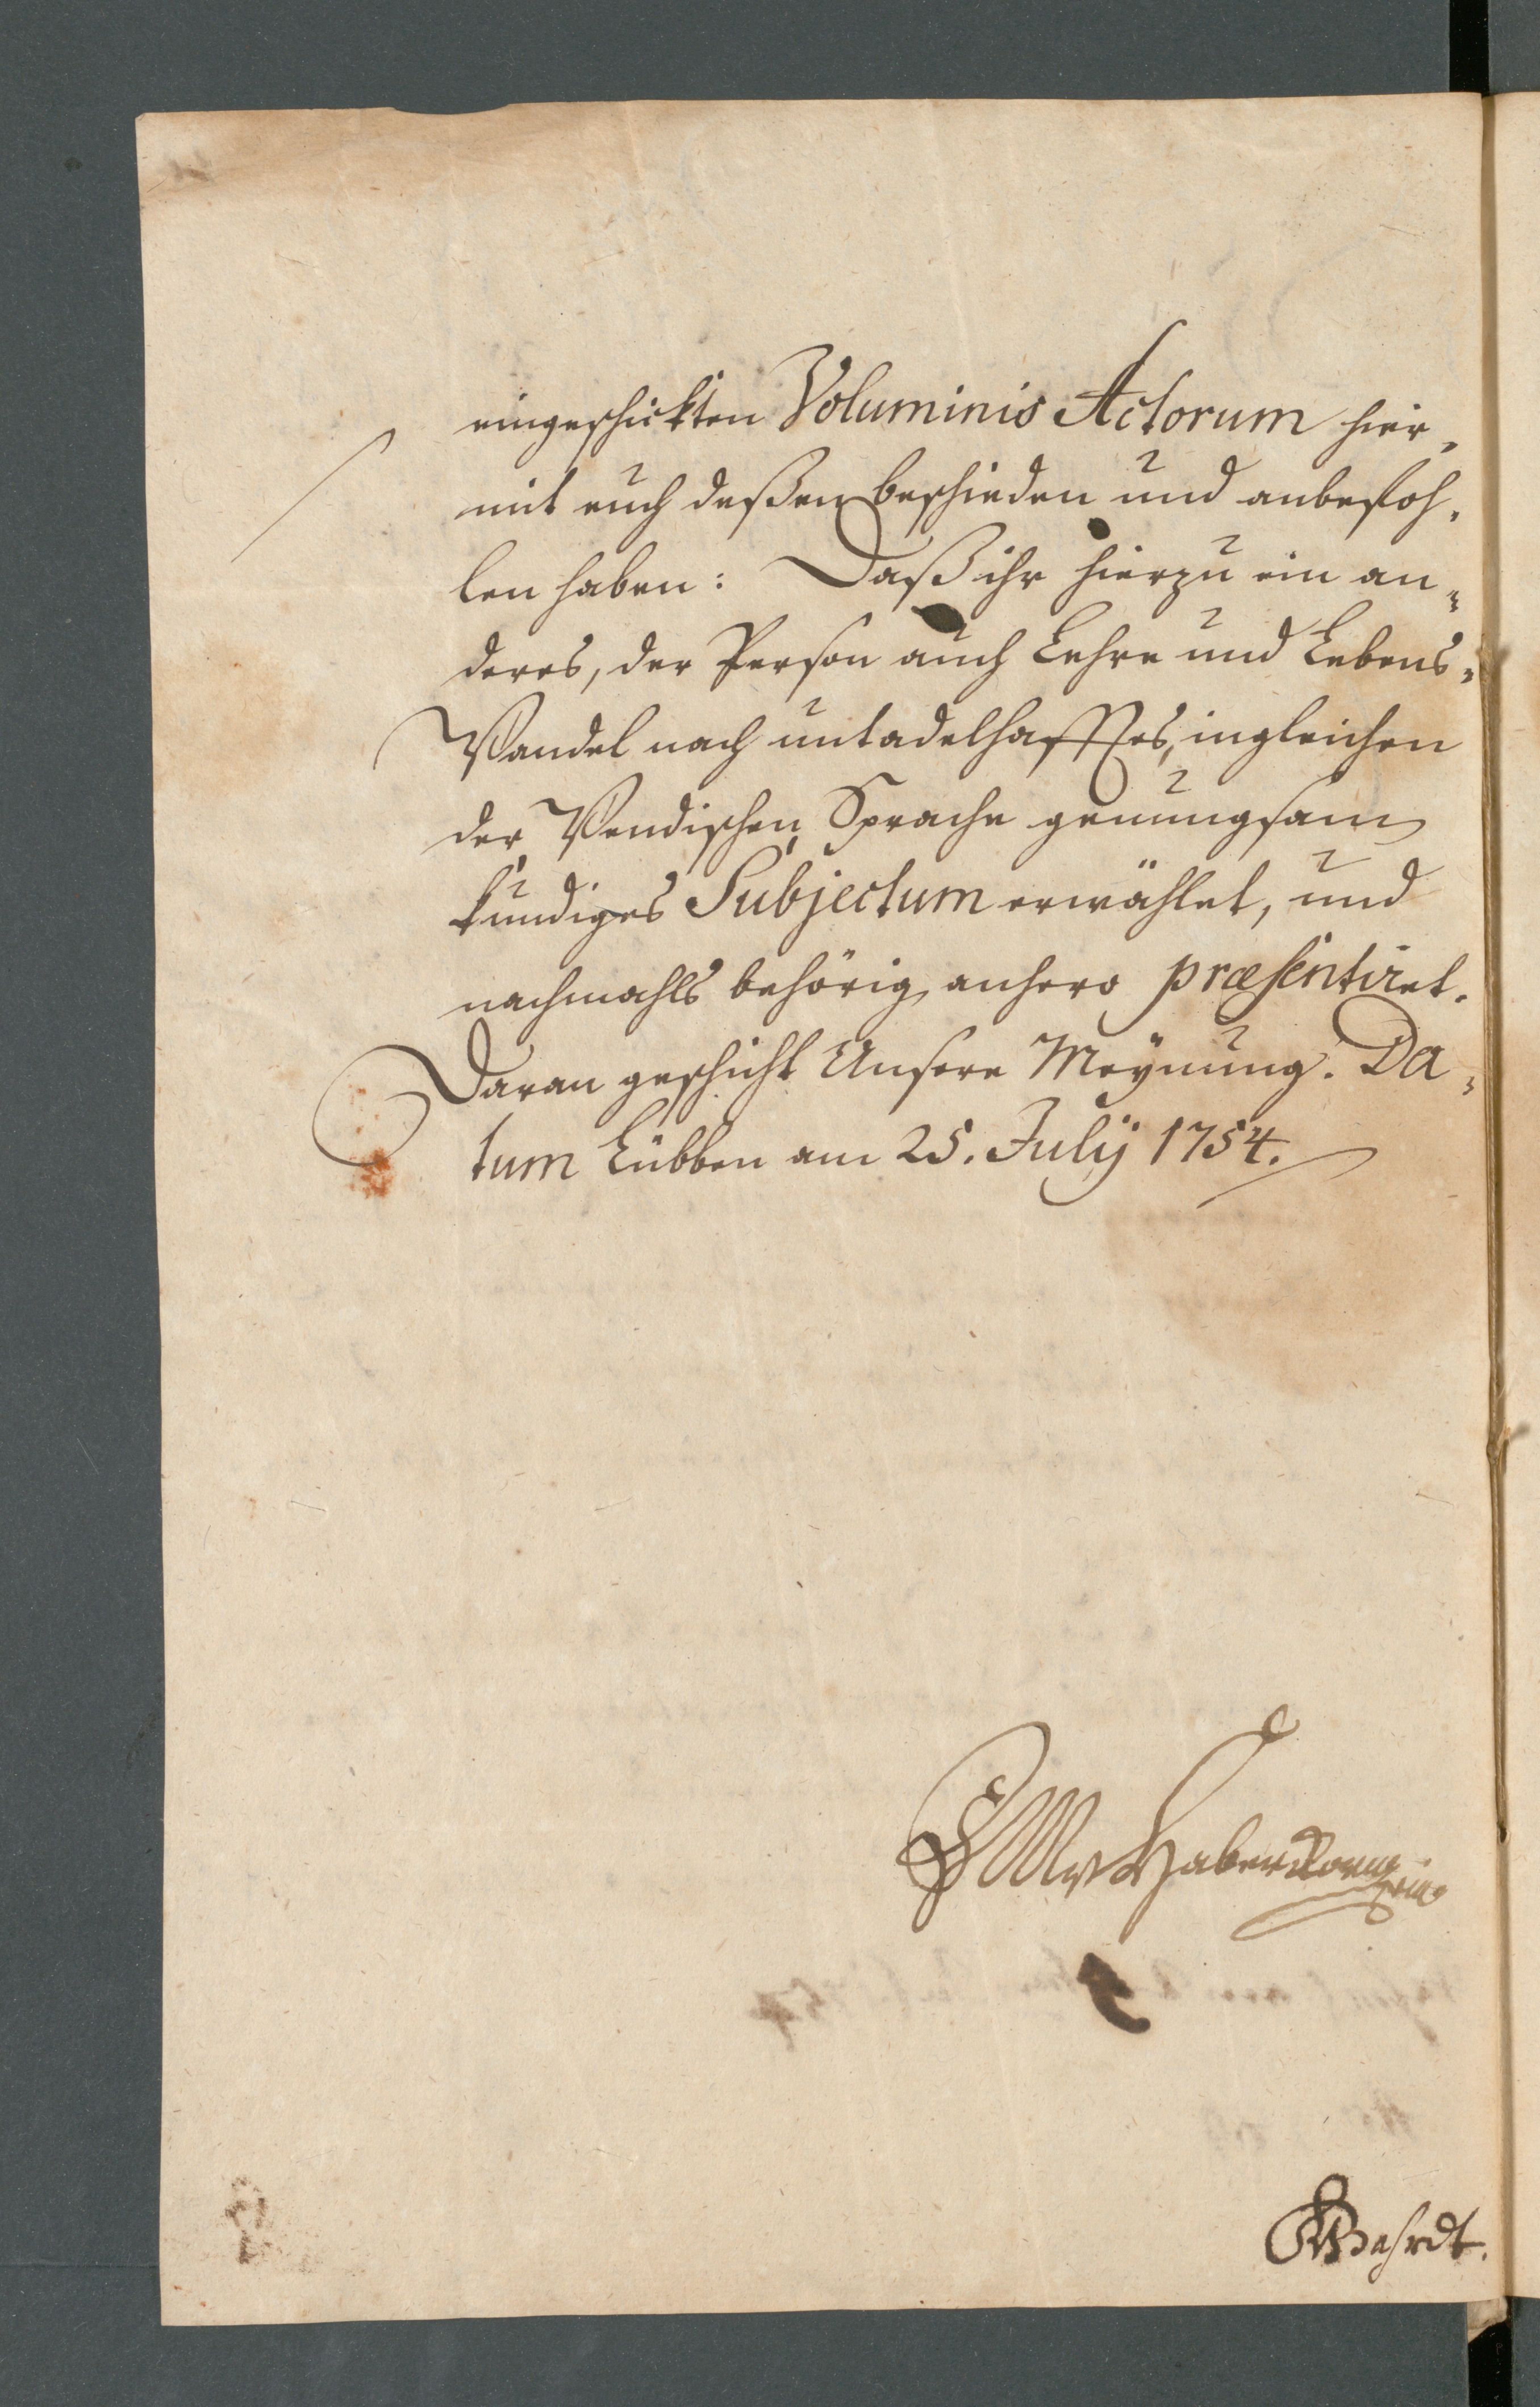 eingeschickten Voluminis Actorum hier-
mit euch deßen beschieden und anbefoh-
len haben: Daß ihr hierzu ein an-
deres, der Person auch Lehre und Lebens-
Wandel nach untadelhafftes, ingleichen
der Wendischen Sprache genungsam
kundiges Subjectum erwählet, und
nachmahls behörig anhero præsentiret.
Daran geschicht Unsere Meynung. Da-
tum Lübben am 25. Julij 1754.
Haberkorn
Bahrdt.